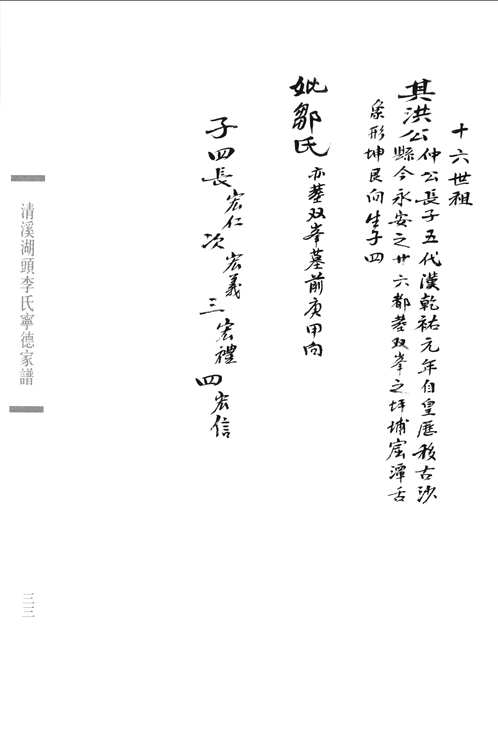 十六世祖
其洪公仲公長子五代漢乾祐元年自皇歷移古沙
縣今永安之廿六都葬双峯之坪埔窟潭舌
象形坤艮向生子四
妣鄒氏亦葬双峯墓前庚甲向
子四長宏仁次宏義三宏禮四宏信
清溪湖頭李氏寧德家譜
三三